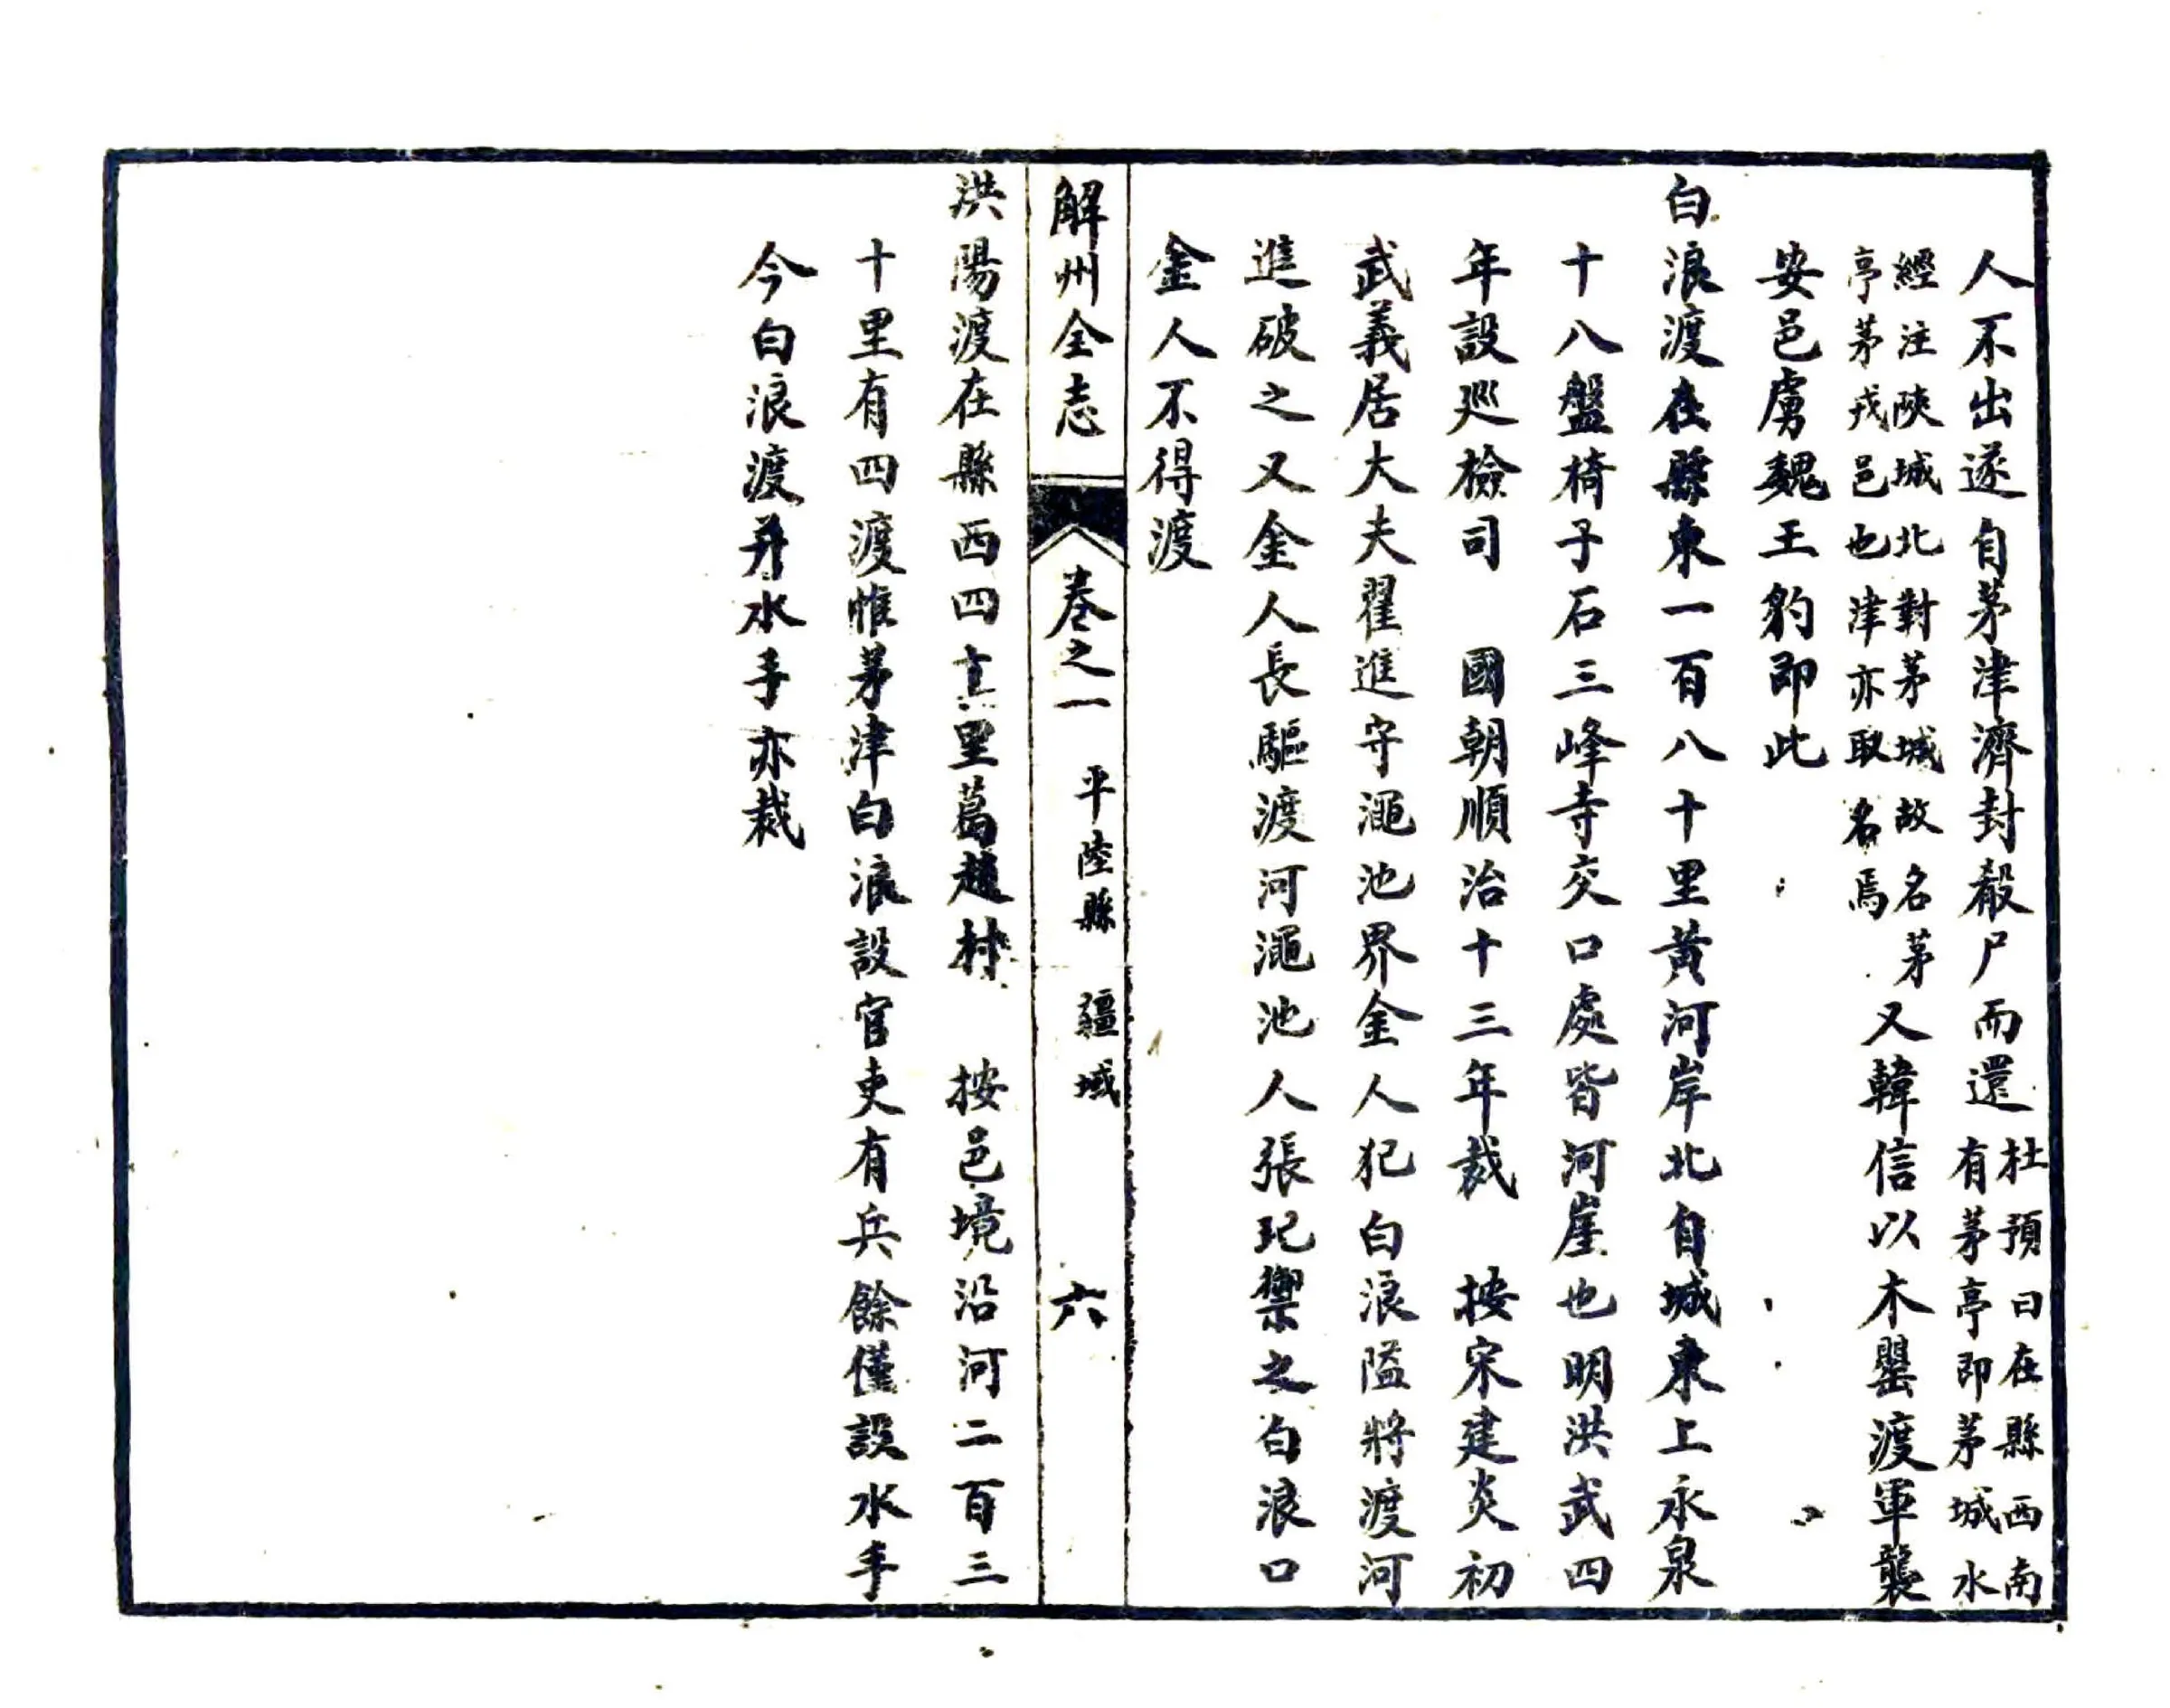 人不出遂自茅津濟封殽尸而還杜預曰在縣西南有茅亭即茅城水
經注陝城北對茅城故名茅亭茅戎邑也津亦取名焉又韓信以木罌渡軍襲
安邑虜魏王豹即此
白浪渡在縣東一百八十里黃河岸北自城東上永泉
十八盤椅子石三峰寺交口處皆河崖也明洪武四
年設廵檢司 國朝順治十三年裁 按宋建炎初
武義居大夫翟進守澠池界金人犯白浪隘將渡河
進破之又金人長驅渡河澠池人張玘禦之白浪口
金人不得渡
解州全志 卷之一 平陸縣 疆域 六
洪陽渡在縣西四十里葛趙村 按邑境沿河二百三
十里有四渡惟茅津白浪設官吏有兵餘僅設水手
今白浪渡并水手亦裁